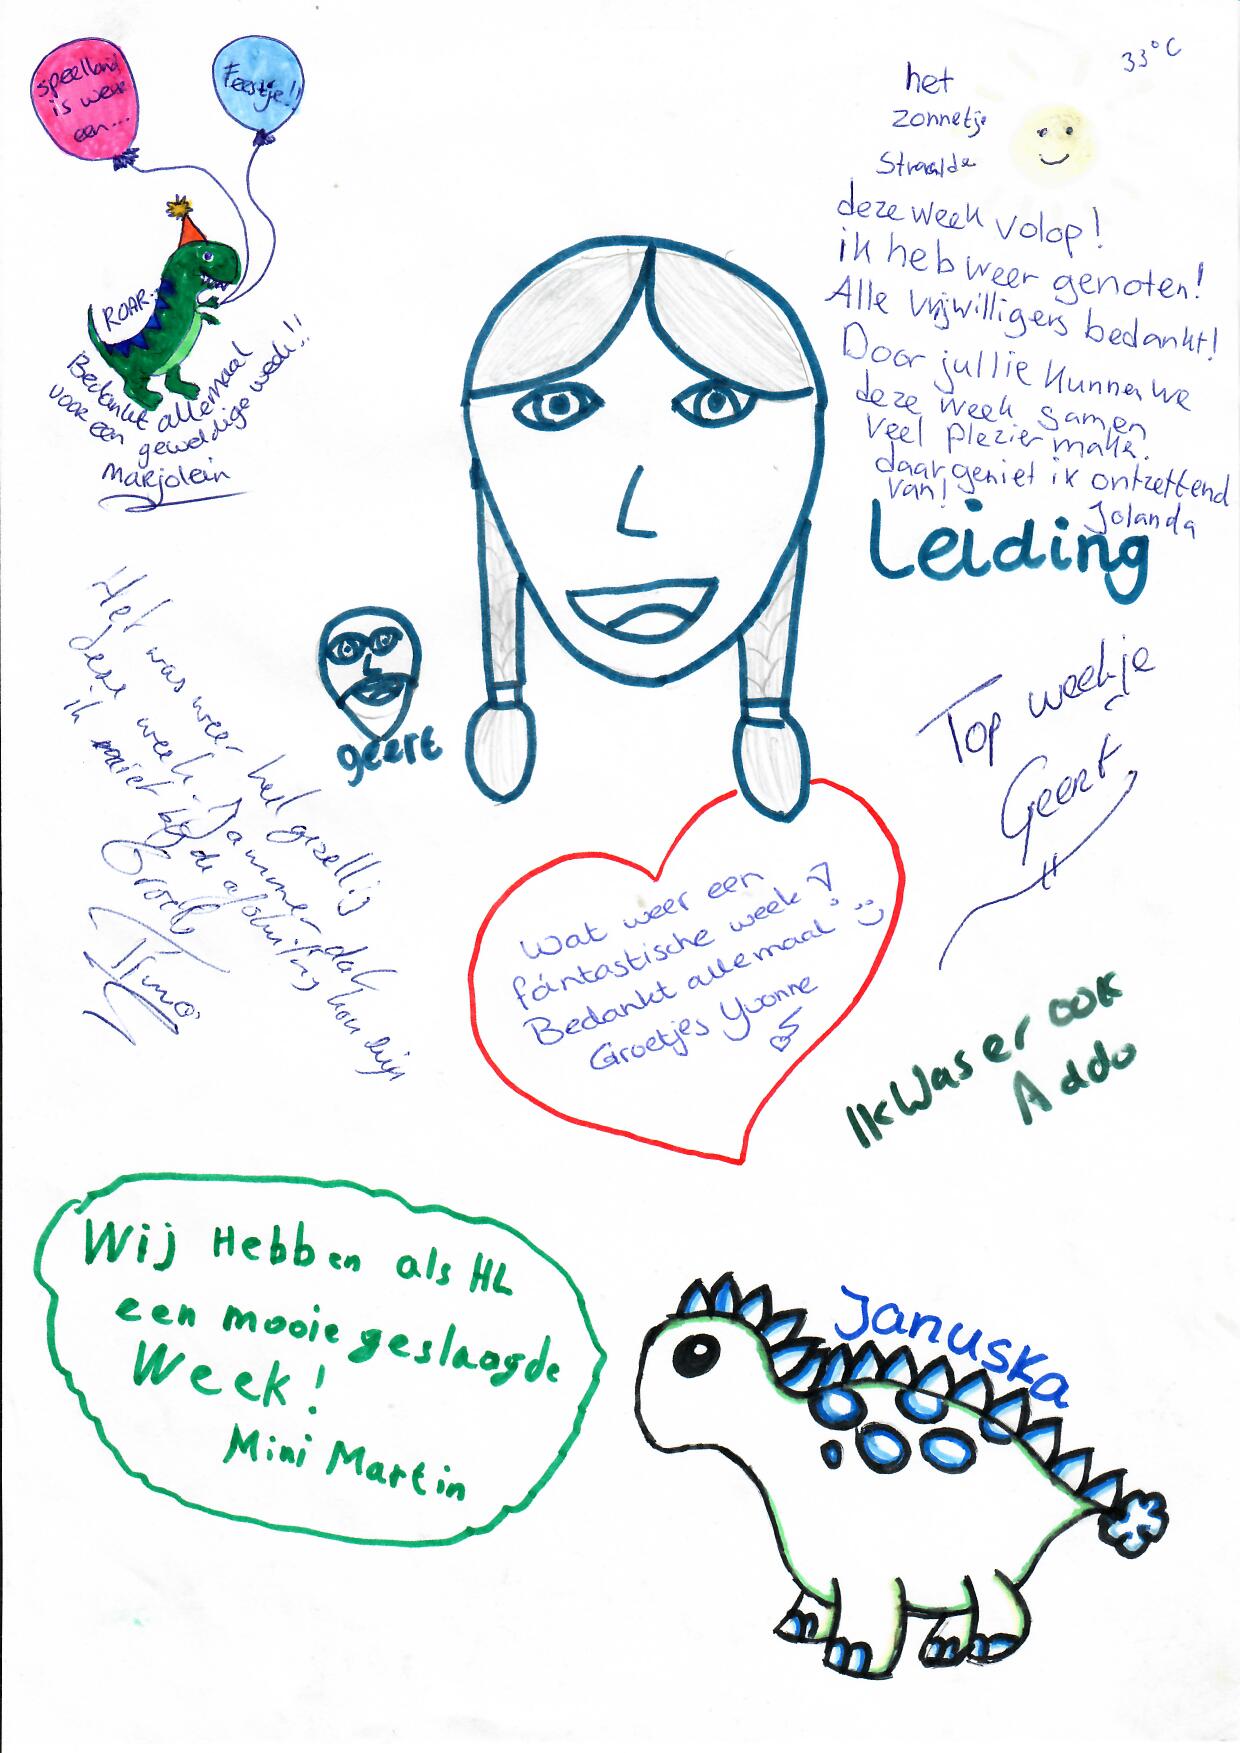 speelland
is weer
een...
Feestje!!
ROAR...
Bedankt allemaal
voor een geweldige week!!
Marjolein
33°C
het
zonnetje
straalde
deze week volop!
ik heb weer genoten!
Alle vrijwilligers bedankt!
Door jullie kunnen we
deze week samen
veel plezier make.
daar geniet ik ontzettend
van!
Jolanda
Leiding
geert
Het was weer heel gezellig
deze week. Jammer dat
ik niet bij de afsluiting kon zijn
Groetjes
Timo
Top weekje
Geert
Wat weer een
fantastische week!
Bedankt allemaal :)
Groetjes Yvonne
Ik Was er ook
Addo
Wij Hebben als HL
een mooie geslaagde
Week!
Mini Martin
Januska